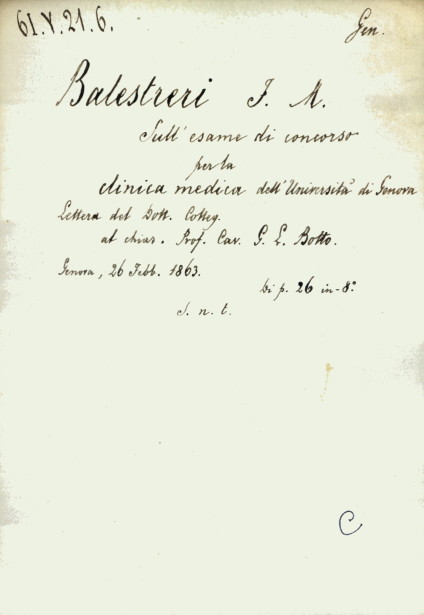 61.V.21.6.
Gen.
Balestreri F. M.
Sull' esame di concorso
per la
clinica medica dell' Università di Genova
Lettera del Dott. Colleg.
al chiar. Prof. Cav. G. L. Botto.
Genova, 26 Febb. 1863.
Di p. 26 in-8°
S. n. t.
C